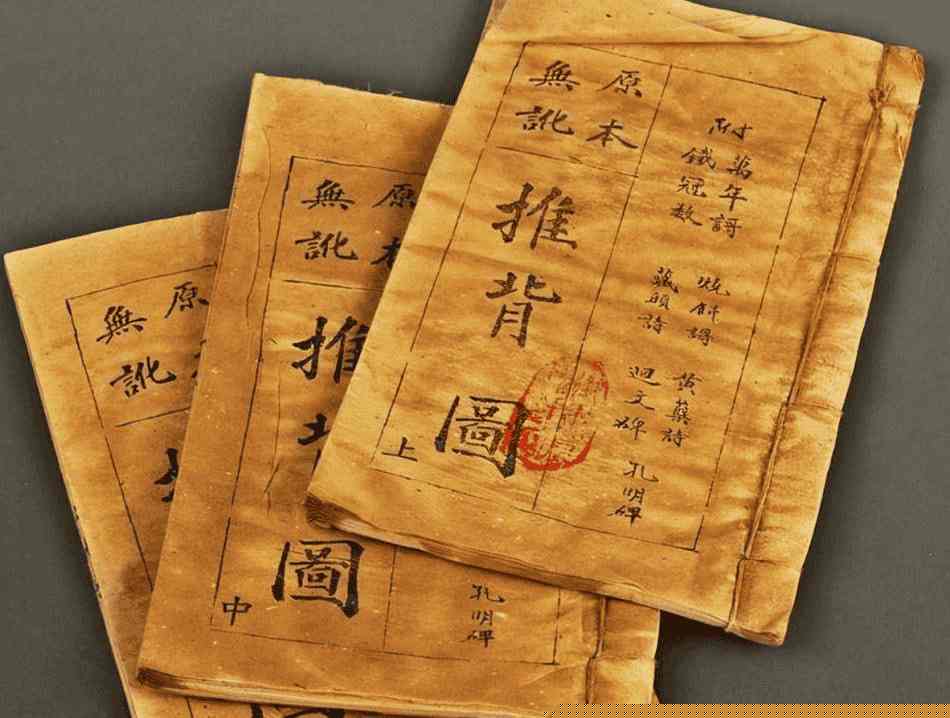 附
萬年謌
鐵冠數
燒餅謌
藏頭詩
黃蘗詩
迴文碑
孔明碑
原本
無訛
推背圖
上
孔明碑
原本
無訛
推
圖
中
原
無訛